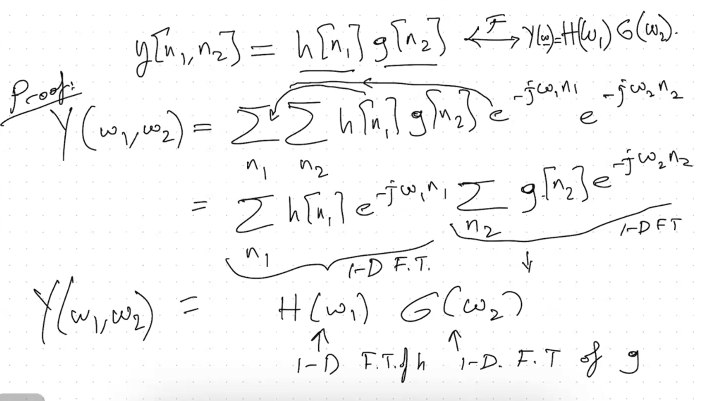 y[n₁,n₂] = h[n₁] g[n₂] ⟷ᶠ Y(ω)=H(ω₁) G(ω₂).
Proof:
Y(ω₁,ω₂) = Σ_{n₁} Σ_{n₂} h[n₁] g[n₂] e^{-jω₁n₁} e^{-jω₂n₂}
= Σ_{n₁} h[n₁] e^{-jω₁n₁} Σ_{n₂} g[n₂] e^{-jω₂n₂}
1-D F.T. 1-D FT
Y(ω₁,ω₂) = H(ω₁) G(ω₂)
1-D F.T. of h 1-D. F.T of g